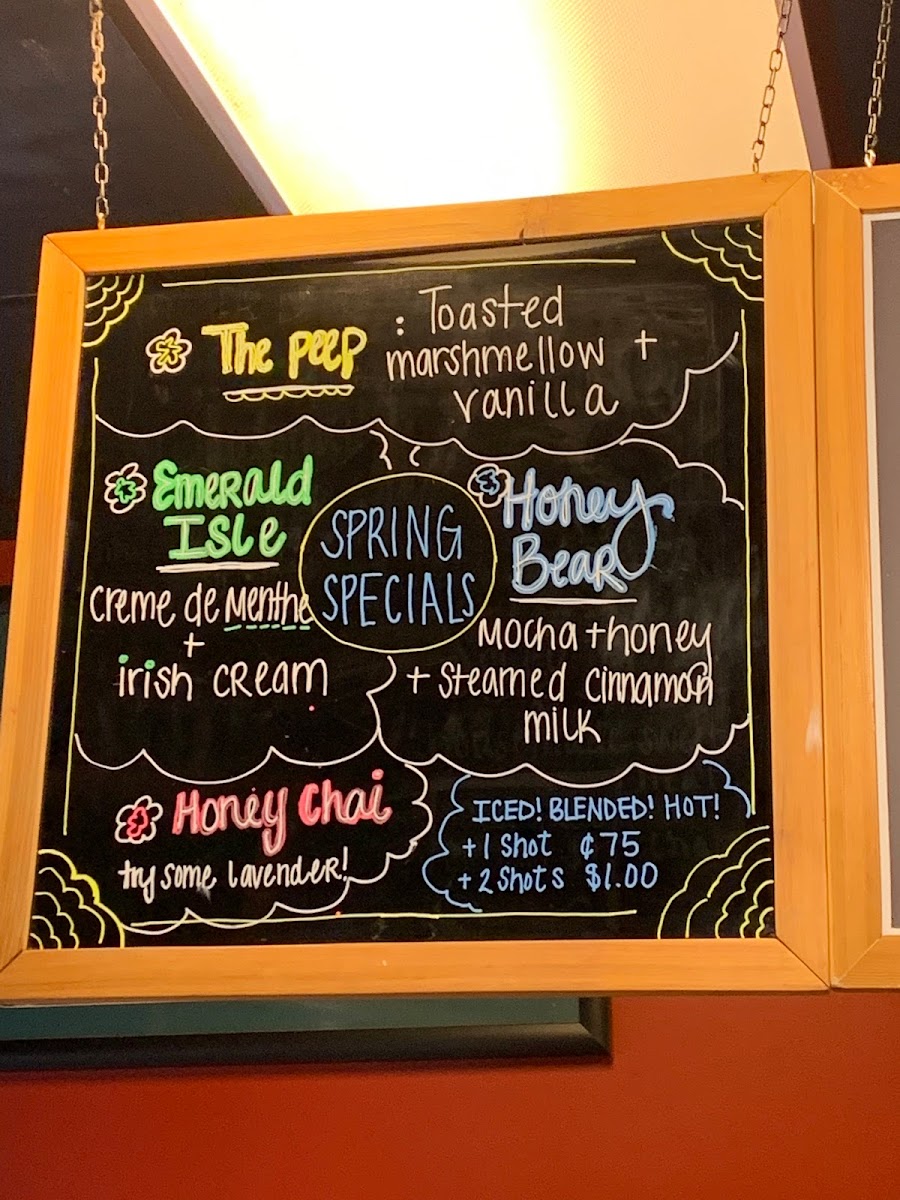 The Peep
: Toasted
marshmellow +
vanilla
Emerald
Isle
creme de Menthe
+
irish cream
SPRING
SPECIALS
Honey
Bear
Mocha + honey
+ Steamed cinnamon
milk
Honey Chai
try some lavender!
ICED! BLENDED! HOT!
+ 1 Shot ¢75
+ 2 Shots $1.00